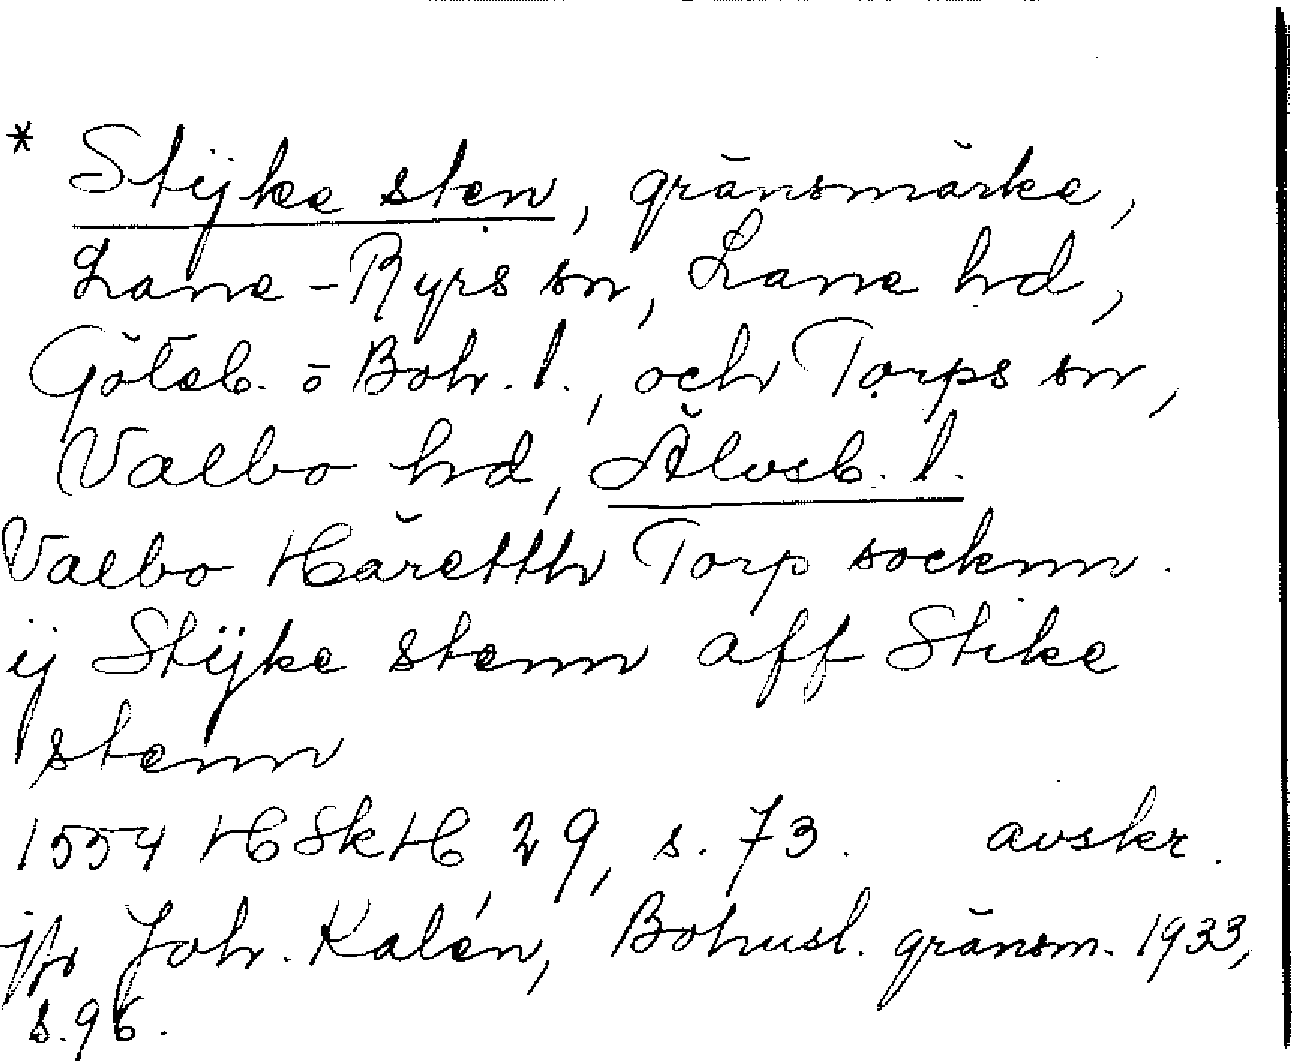 * Stijke sten, gränsmärke,
Lane-Ryrs sn, Lane hd,
Göteb. o Boh. l., och Torps sn,
Valbo hd, Älvsb. l.
Valbo Häretth Torp socknn.
ij Stijke stenn aff Stike
stenn
1554 HSkH, 29, s. 73. avskr.
jfr Joh. Kalén, Bohusl. gränsm. 1933,
s. 96.